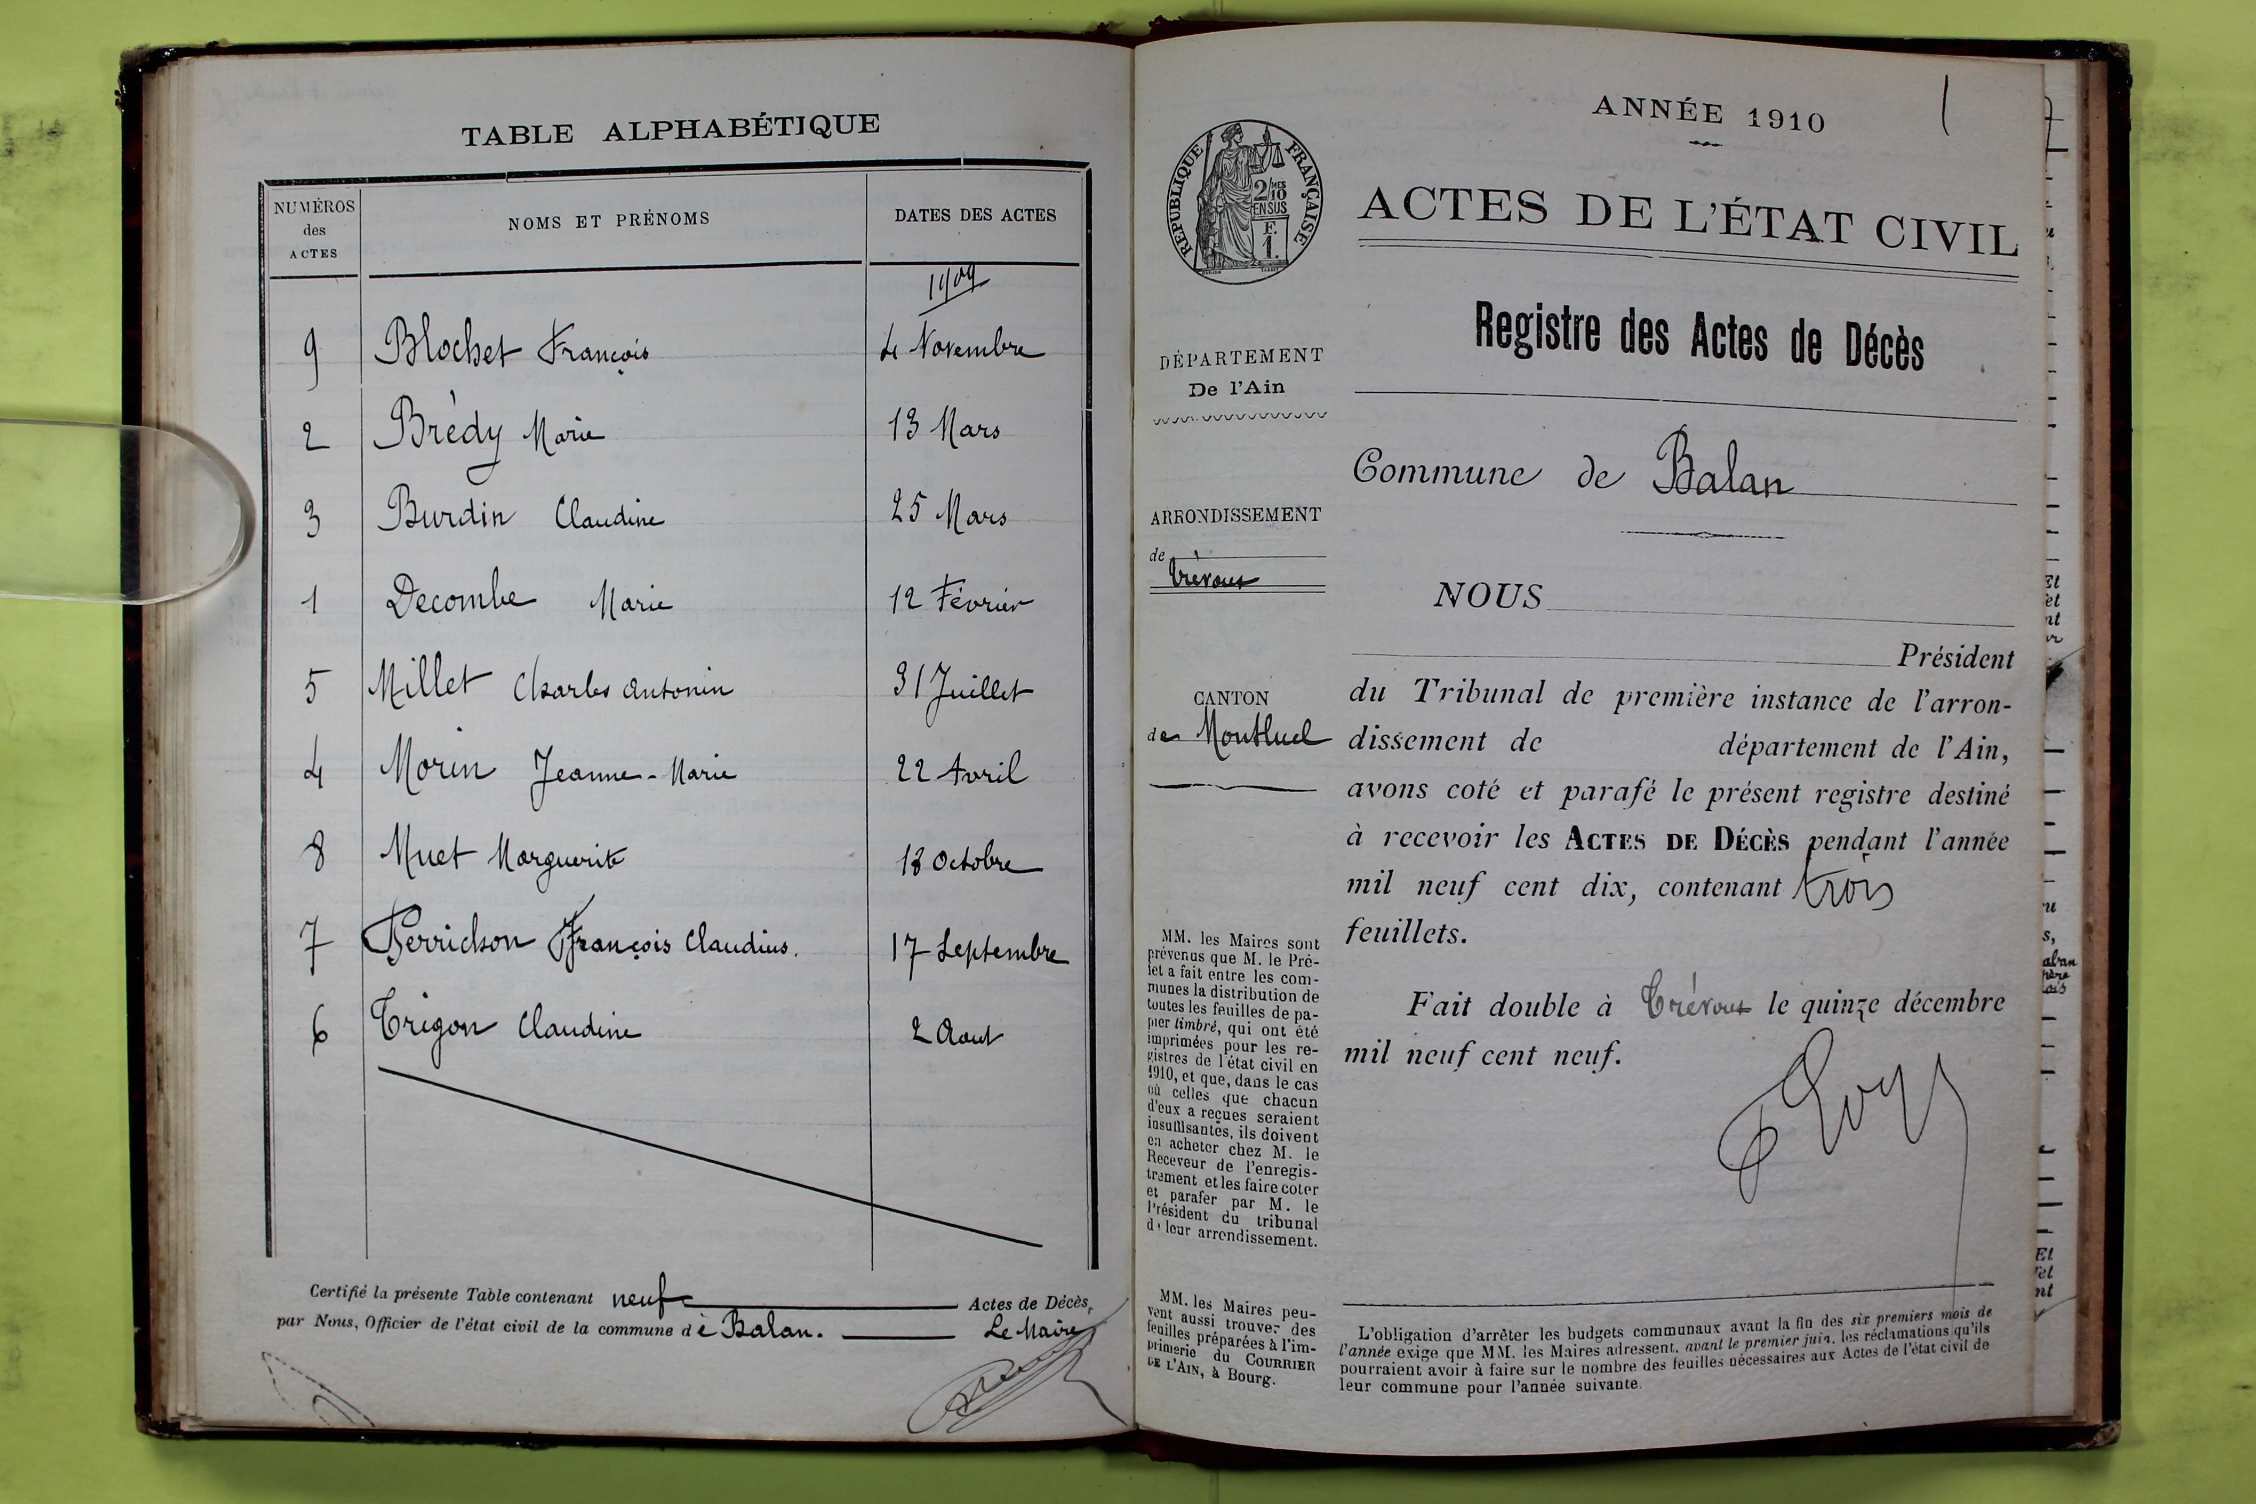 TABLE ALPHABÉTIQUE
NUMÉROS des ACTES NOMS ET PRÉNOMS DATES DES ACTES
1909
9 Blochet François 4 Novembre
2 Brédy Marie 13 Mars
3 Burdin Claudine 25 Mars
1 Decombe Marie 12 Février
5 Millet Charles Antonin 31 Juillet
4 Morin Jeanne-Marie 22 Avril
8 Muet Marguerite 18 Octobre
7 Perrichon François Claudius. 17 Septembre
6 Trigon Claudine 2 Aout
Certifié la présente Table contenant neuf Actes de Décès,
par Nous, Officier de l'état civil de la commune de Balan.
Le Maire
1
ANNÉE 1910
RÉPUBLIQUE FRANÇAISE
2/MES
10
EN SUS
F.
1.
ACTES DE L'ÉTAT CIVIL
Registre des Actes de Décès
DÉPARTEMENT
De l'Ain
Commune de Balan
ARRONDISSEMENT
de
Trévoux
NOUS
Président
CANTON
de Montluel
du Tribunal de première instance de l'arron-
dissement de département de l'Ain,
avons coté et parafé le présent registre destiné
à recevoir les ACTES DE DÉCÈS pendant l'année
mil neuf cent dix, contenant trois
feuillets.
Fait double à Trévoux le quinze décembre
mil neuf cent neuf.
MM. les Maires sont
prévenus que M. le Pré-
fet a fait entre les com-
munes la distribution de
toutes les feuilles de pa-
pier timbré, qui ont été
imprimées pour les re-
gistres de l'état civil en
1910, et que, dans le cas
où celles que chacun
d'eux a reçues seraient
insuffisantes, ils doivent
en acheter chez M. le
Receveur de l'enregis-
trement et les faire coter
et parafer par M. le
Président du tribunal
de leur arrondissement.
MM. les Maires peu-
vent aussi trouver des
feuilles préparées à l'im-
primerie du COURRIER
DE L'AIN, à Bourg.
L'obligation d'arrêter les budgets communaux avant la fin des six premiers mois de
l'année exige que MM. les Maires adressent, avant le premier juin, les réclamations qu'ils
pourraient avoir à faire sur le nombre des feuilles nécessaires aux Actes de l'état civil de
leur commune pour l'année suivante.